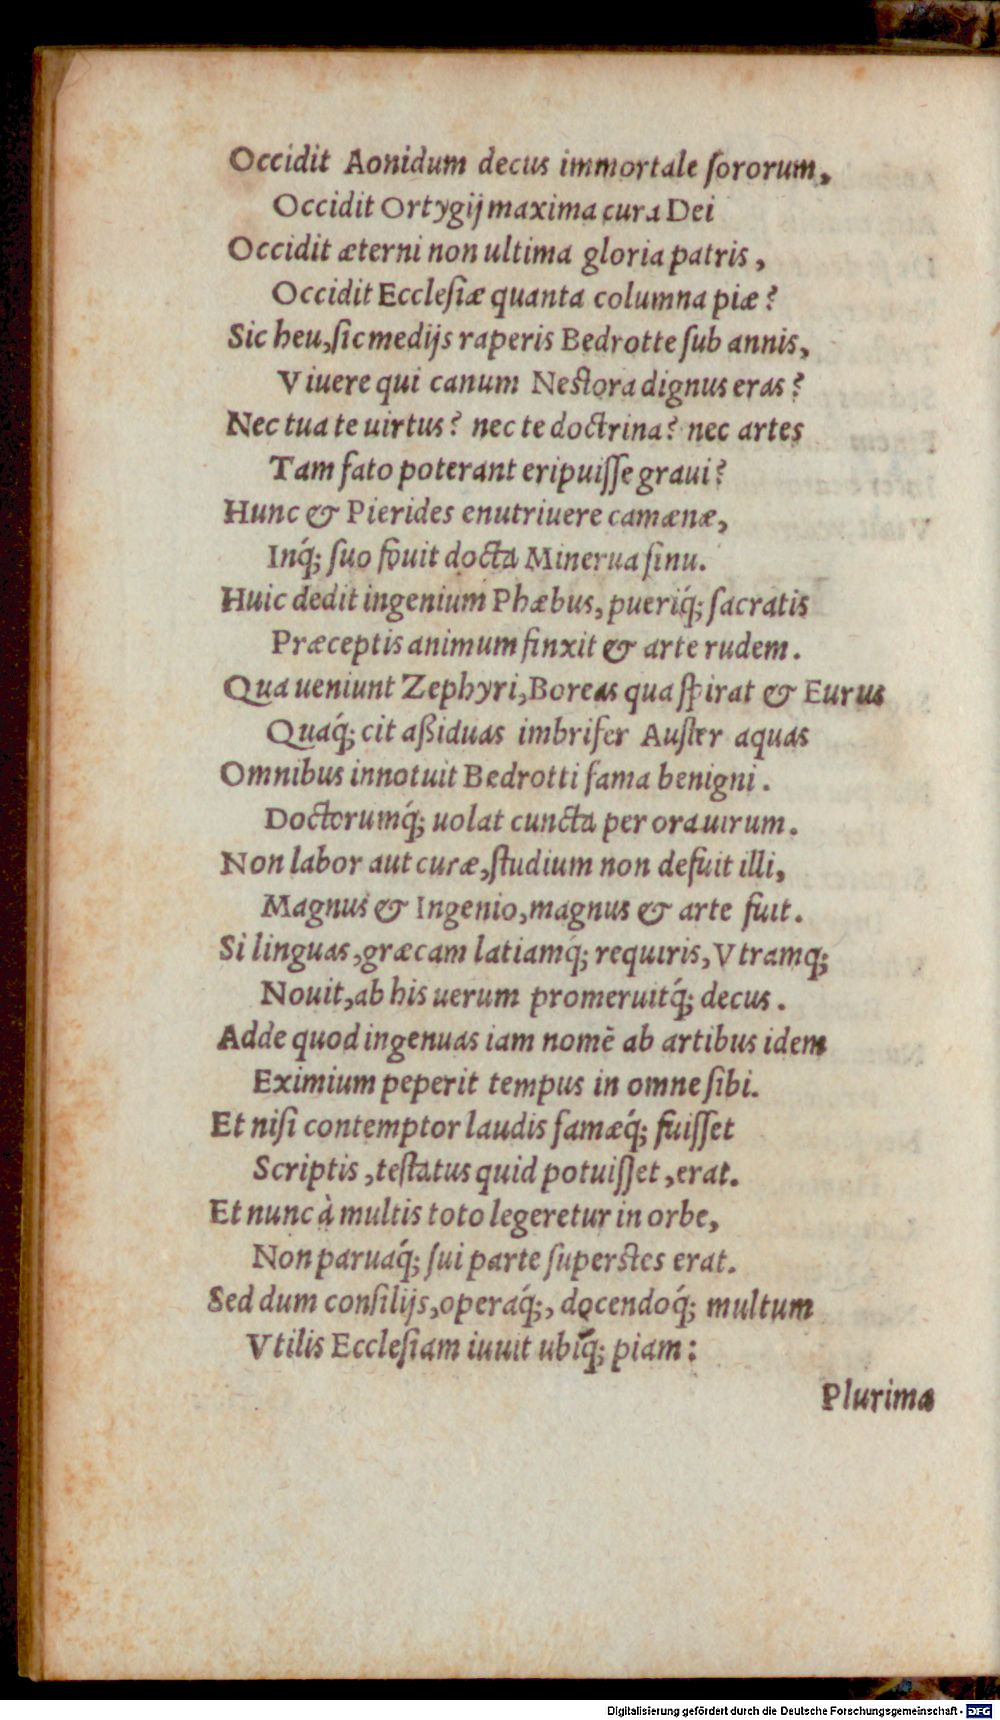 Occidit Aonidum decus immortale ſororum,
Occidit Ortygij maxima cura Dei
Occidit æterni non ultima gloria patris,
Occidit Eccleſiæ quanta columna piæ?
Sic heu, ſic medijs raperis Bedrotte ſub annis,
Viuere qui canum Neſtora dignus eras?
Nec tua te uirtus? nec te doctrina? nec artes
Tam fato poterant eripuiſſe graui?
Hunc & Pierides enutriuere camænæ,
Inq́; ſuo fouit docta Minerua ſinu.
Huic dedit ingenium Phæbus, pueriq́; ſacratis
Præceptis animum finxit & arte rudem.
Qua ueniunt Zephyri, Boreas qua ſpirat & Eurus
Quaq́; cit aßiduas imbrifer Auſter aquas
Omnibus innotuit Bedrotti fama benigni.
Doctorumq́; uolat cuncta per ora uirum.
Non labor aut curæ, ſtudium non defuit illi,
Magnus & Ingenio, magnus & arte fuit.
Si linguas, græcam latiamq́; requiris, Vtramq;
Nouit, ab his uerum promeruitq́; decus.
Adde quod ingenuas iam nomẽ ab artibus idem
Eximium peperit tempus in omne ſibi.
Et niſi contemptor laudis famæq́; fuiſſet
Scriptis, teſtatus quid potuiſſet, erat.
Et nunc à multis toto legeretur in orbe,
Non paruaq́; ſui parte ſuperſtes erat.
Sed dum conſilijs, operaq́;, docendoq́; multum
Vtilis Eccleſiam iuuit ubiq́; piam:
Plurima
Digitalisierung gefördert durch die Deutsche Forschungsgemeinschaft - DFG